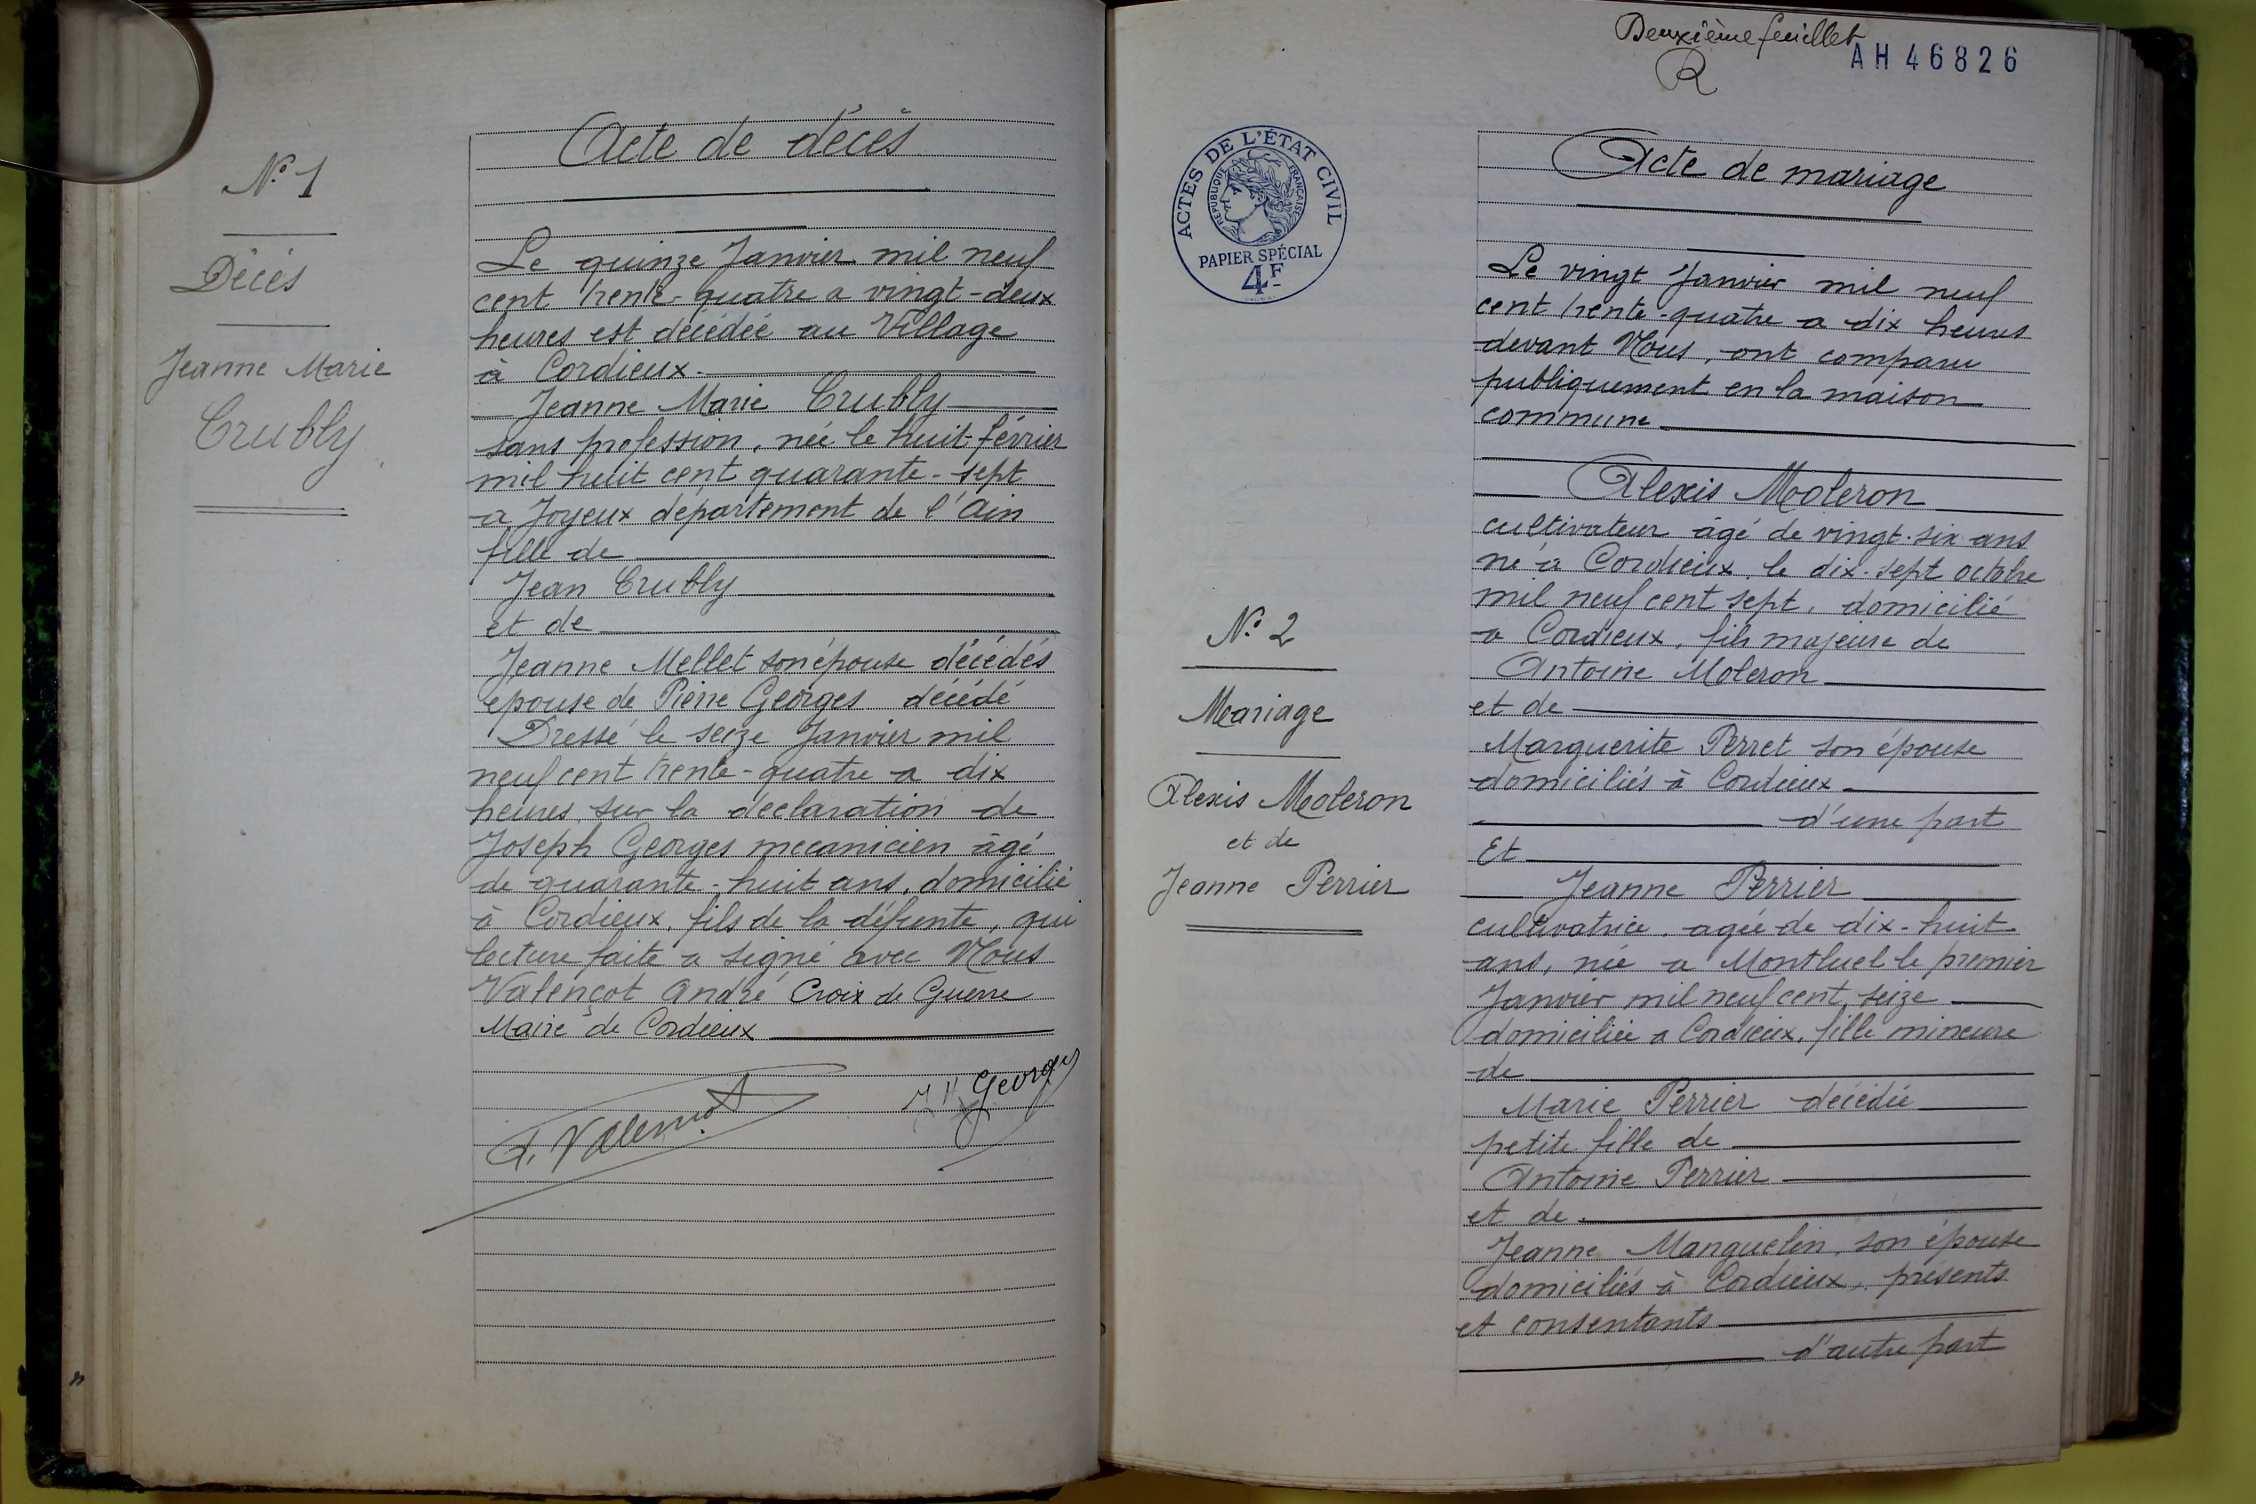 N° 1
Décés
Jeanne Marie
Crubly
Acte de décès
Le quinze Janvier mil neuf
cent trente-quatre a vingt-deux
heures est décédée au Village
à Cordieux
Jeanne Marie Crubly
sans profession, née le huit février
mil huit cent quarante-sept
a Joyeux département de l'Ain
fille de
Jean Crubly
et de
Jeanne Mellet son épouse décédés
épouse de Pierre Georges décédé
Dressé le seize Janvier mil
neuf cent trente-quatre a dix
heures, sur la déclaration de
Joseph Georges mecanicien âgé
de quarante-huit ans, domicilié
à Cordieux, fils de la défunte, qui
lecture faite a signé avec Nous
Valençot André Croix de Guerre
Maire de Cordieux
A. Valençot
Georges
Deuxième feuillet
AH46826
ACTES DE L'ÉTAT CIVIL
RÉPUBLIQUE FRANÇAISE
PAPIER SPÉCIAL
4F
N° 2
Mariage
Alexis Moleron
et de
Jeanne Perrier
Acte de mariage
Le vingt Janvier mil neuf
cent trente-quatre a dix heures
devant Nous, ont comparu
publiquement en la maison
commune
Alexis Moleron
cultivateur âgé de vingt-six ans
né à Cordieux, le dix-sept octobre
mil neuf cent sept, domicilié
a Cordieux, fils majeure de
Antoine Moleron
et de
Marguerite Perret son épouse
domiciliés à Cordieux
d'une part
Et
Jeanne Perrier
cultivatrice, agée de dix-huit
ans, née a Montluel le premier
Janvier mil neuf cent seize
domiciliée a Cordieux, fille mineure
de
Marie Perrier décédée
petite fille de
Antoine Perrier
et de
Jeanne Manguelin, son épouse
domiciliés à Cordieux, présents
et consentants
d'autre part